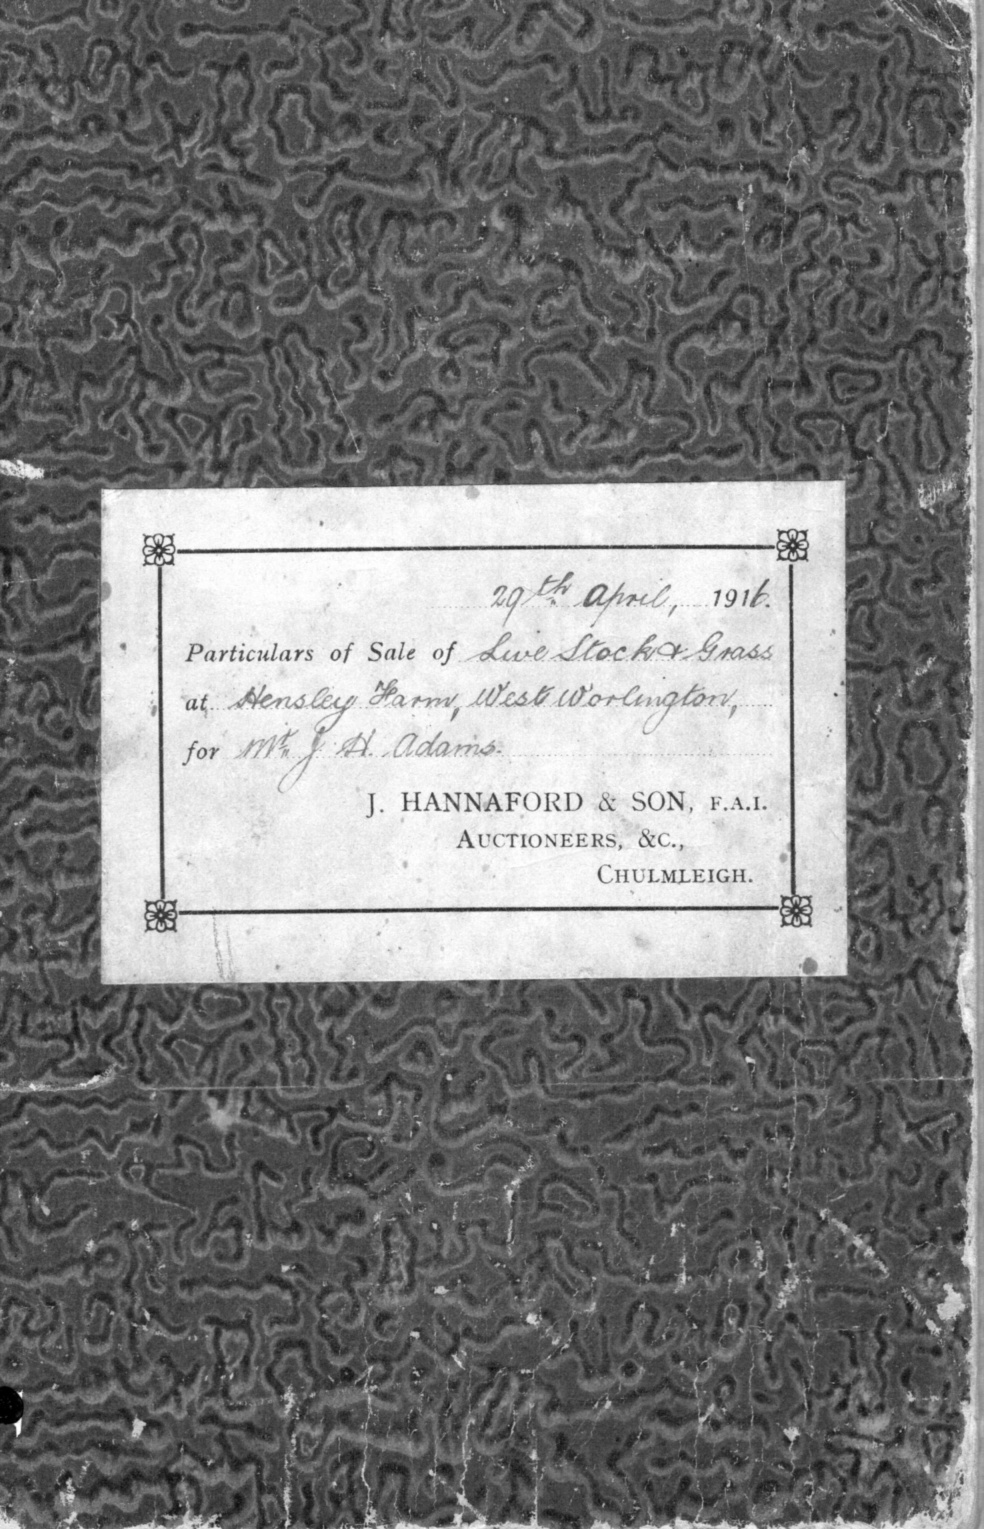 29th April, 1916.
Particulars of Sale of Live Stock & Grass
at Hensley Farm, West Worlington,
for Mr. J. H. Adams.
J. HANNAFORD & SON, F.A.I.
AUCTIONEERS, &C.,
CHULMLEIGH.